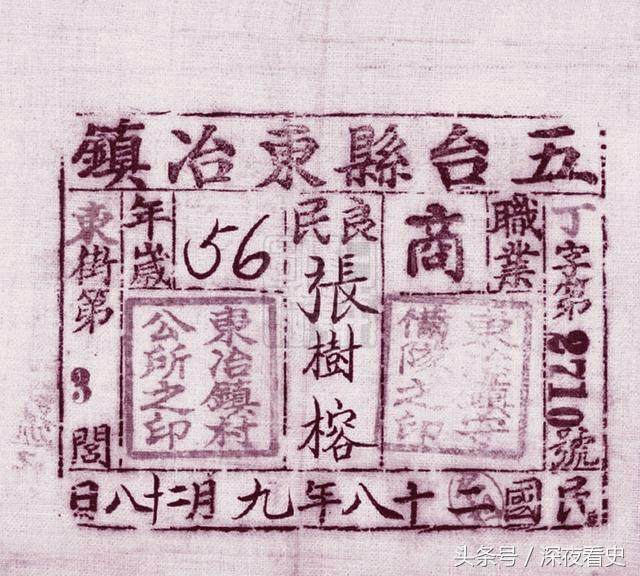 五台縣東冶鎮
丁字第2710號
職業
商
東冶鎮守
備隊之印
良民
張樹榕
年歲
56
東冶鎮村
公所之印
東街第3閭
民國二十八年九月二十八日
头条号/深夜看史